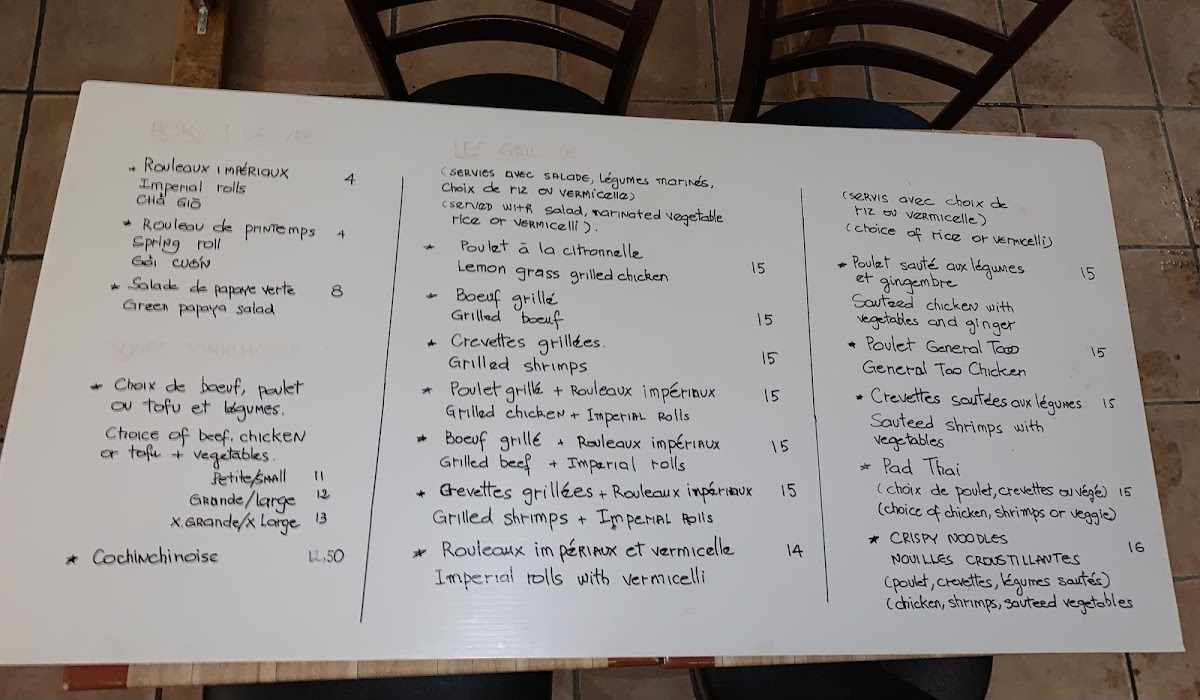 HORS
* Rouleaux IMPÉRIAUX 4
Imperial rolls
CHẢ GIÒ
* Rouleau de printemps 4
Spring roll
GỎI CUỐN
* Salade de papaye verte 8
Green papaya salad
SOUPE TONKINOISE
* Choix de boeuf, poulet
ou tofu et légumes.
Choice of beef, chicken
or tofu + vegetables.
Petite/small 11
Grande/large 12
X.GRANDE/X Large 13
* Cochinchinoise 12,50
LES
(SERVIES AVEC SALADE, Légumes marinés,
Choix de riz ou vermicelle)
(SERVED WITH salad, marinated vegetable
rice or vermicelli).
* Poulet à la citronnelle
Lemon grass grilled chicken 15
* Boeuf grillé
Grilled boeuf 15
* Crevettes grillées.
Grilled shrimps 15
* Poulet grillé + Rouleaux impériaux 15
Grilled chicken + Imperial Rolls
* Boeuf grillé + Rouleaux impériaux 15
Grilled beef + Imperial rolls
* Crevettes grillées + Rouleaux impériaux 15
Grilled shrimps + Imperial Rolls
* Rouleaux impériaux et vermicelle 14
Imperial rolls with vermicelli
(SERVIS avec choix de
riz ou vermicelle)
(choice of rice or vermicelli)
* Poulet sauté aux légumes 15
et gingembre
Sauteed chicken with
vegetables and ginger
* Poulet General Tao 15
General Tao Chicken
* Crevettes sautées aux légumes 15
Sauteed shrimps with
vegetables
* Pad Thai
(choix de poulet, crevettes ou végé) 15
(choice of chicken, shrimps or veggie)
* CRISPY NOODLES
NOUILLES CROUSTILLANTES 16
(poulet, crevettes, légumes sautés)
(chicken, shrimps, sauteed vegetables